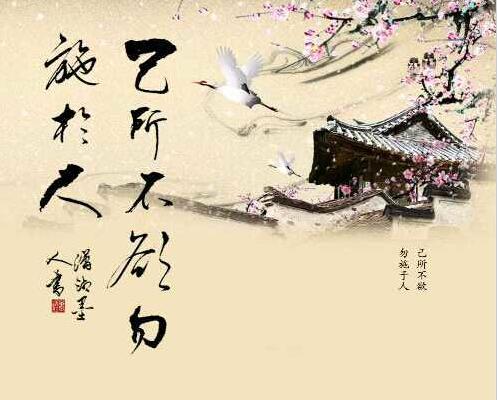 己所不欲勿
施於人
瀟湘墨
人書
己所不欲
勿施于人